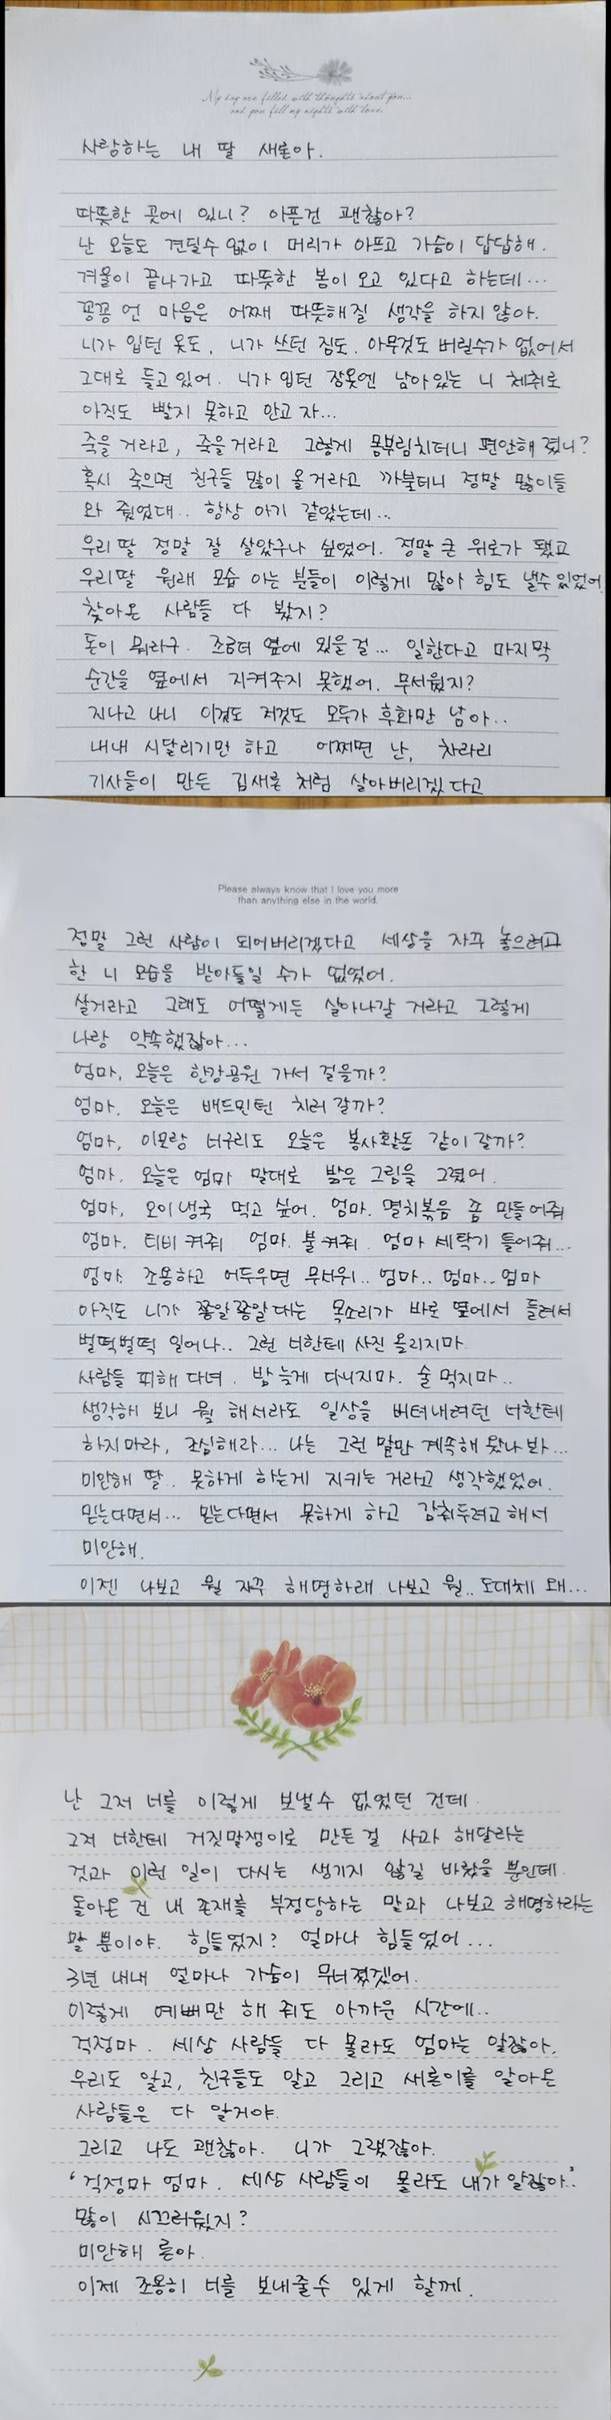 My day are filled with thoughts about you...
and you fill my nights with love.
사랑하는 내 딸 새론아.
따뜻한 곳에 있니? 아픈건 괜찮아?
난 오늘도 견딜수 없이 머리가 아프고 가슴이 답답해.
겨울이 끝나가고 따뜻한 봄이 오고 있다고 하는데...
꽁꽁 언 마음은 어째 따뜻해질 생각을 하지 않아.
니가 입던 옷도, 니가 쓰던 짐도. 아무것도 버릴수가 없어서
그대로 들고있어. 니가 입던 잠옷엔 남아있는 니 체취로
아직도 빨지 못하고 안고 자...
죽을 거라고, 죽을거라고 그렇게 몸부림치더니 편안해 졌니?
혹시 죽으면 친구들 많이 올 거라고 까불더니 정말 많이들
와 줬었대.. 항상 아기 같았는데...
우리 딸 정말 잘 살았구나 싶었어. 정말 큰 위로가 됐고
우리딸 원래 모습 아는 분들이 이렇게 많아 힘도 낼수 있었어
찾아온 사람들 다 봤지?
돈이 뭐라구. 조금더 옆에 있을걸... 일한다고 마지막
순간을 옆에서 지켜주지 못했어. 무서웠지?
지나고 나니 이것도 저것도 모두가 후회만 남아..
내내 시달리기만 하고 어쩌면 난, 차라리
기사들이 만든 김새론 처럼 살아버리겠다고
Please always know that I love you more
than anything else in the world.
정말 그런 사람이 되어버리겠다고 세상을 자꾸 놓으려고
한 니 모습을 받아들일 수가 없었어.
살거라고 그래도 어떻게든 살아나갈 거라고 그렇게
나랑 약속했잖아...
엄마, 오늘은 한강공원 가서 걸을까?
엄마. 오늘은 배드민턴 치러 갈까?
엄마, 이모랑 너구리도 오늘은 봉사활동 같이 갈까?
엄마. 오늘은 엄마 말대로 밝은 그림을 그렸어.
엄마, 오이냉국 먹고 싶어. 엄마. 멸치볶음 좀 만들어줘
엄마. 티비 켜줘 엄마. 불 켜줘. 엄마 세탁기 틀어줘...
엄마. 조용하고 어두우면 무서워.. 엄마.. 엄마.. 엄마
아직도 니가 쫑알쫑알대는 목소리가 바로 옆에서 들려서
벌떡벌떡 일어나.. 그런 너한테 사진 올리지마.
사람들 피해 다녀. 밤 늦게 다니지마. 술 먹지마..
생각해 보니 뭘 해서라도 일상을 버텨내려던 너한테
하지마라, 조심해라... 나는 그런 말만 계속해 왔나 봐...
미안해 딸. 못하게 하는게 지키는 거라고 생각했었어.
믿는다면서... 믿는다면서 못하게 하고 감춰두려고 해서
미안해.
이젠 나보고 뭘 자꾸 해명하래. 나보고 뭘.. 도대체 왜...
난 그저 너를 이렇게 보낼수 없었던 건데.
그저 너한테 거짓말쟁이로 만든걸 사과 해달라는
것과 이런 일이 다시는 생기지 않길 바랬을 뿐인데.
돌아온 건 내 존재를 부정당하는 말과 나보고 해명하라는
말 뿐이야. 힘들었지? 얼마나 힘들었어...
3년 내내 얼마나 가슴이 무너졌겠어.
이렇게 예뻐만 해 줘도 아까운 시간에..
걱정마. 세상 사람들 다 몰라도 엄마는 알잖아.
우리도 알고, 친구들도 알고 그리고 새론이를 알아온
사람들은 다 알거야.
그리고 나도 괜찮아. 니가 그랬잖아.
'걱정마 엄마. 세상 사람들이 몰라도 내가 알잖아.'
많이 시끄러웠지?
미안해 론아.
이제 조용히 너를 보내줄수 있게 할께.